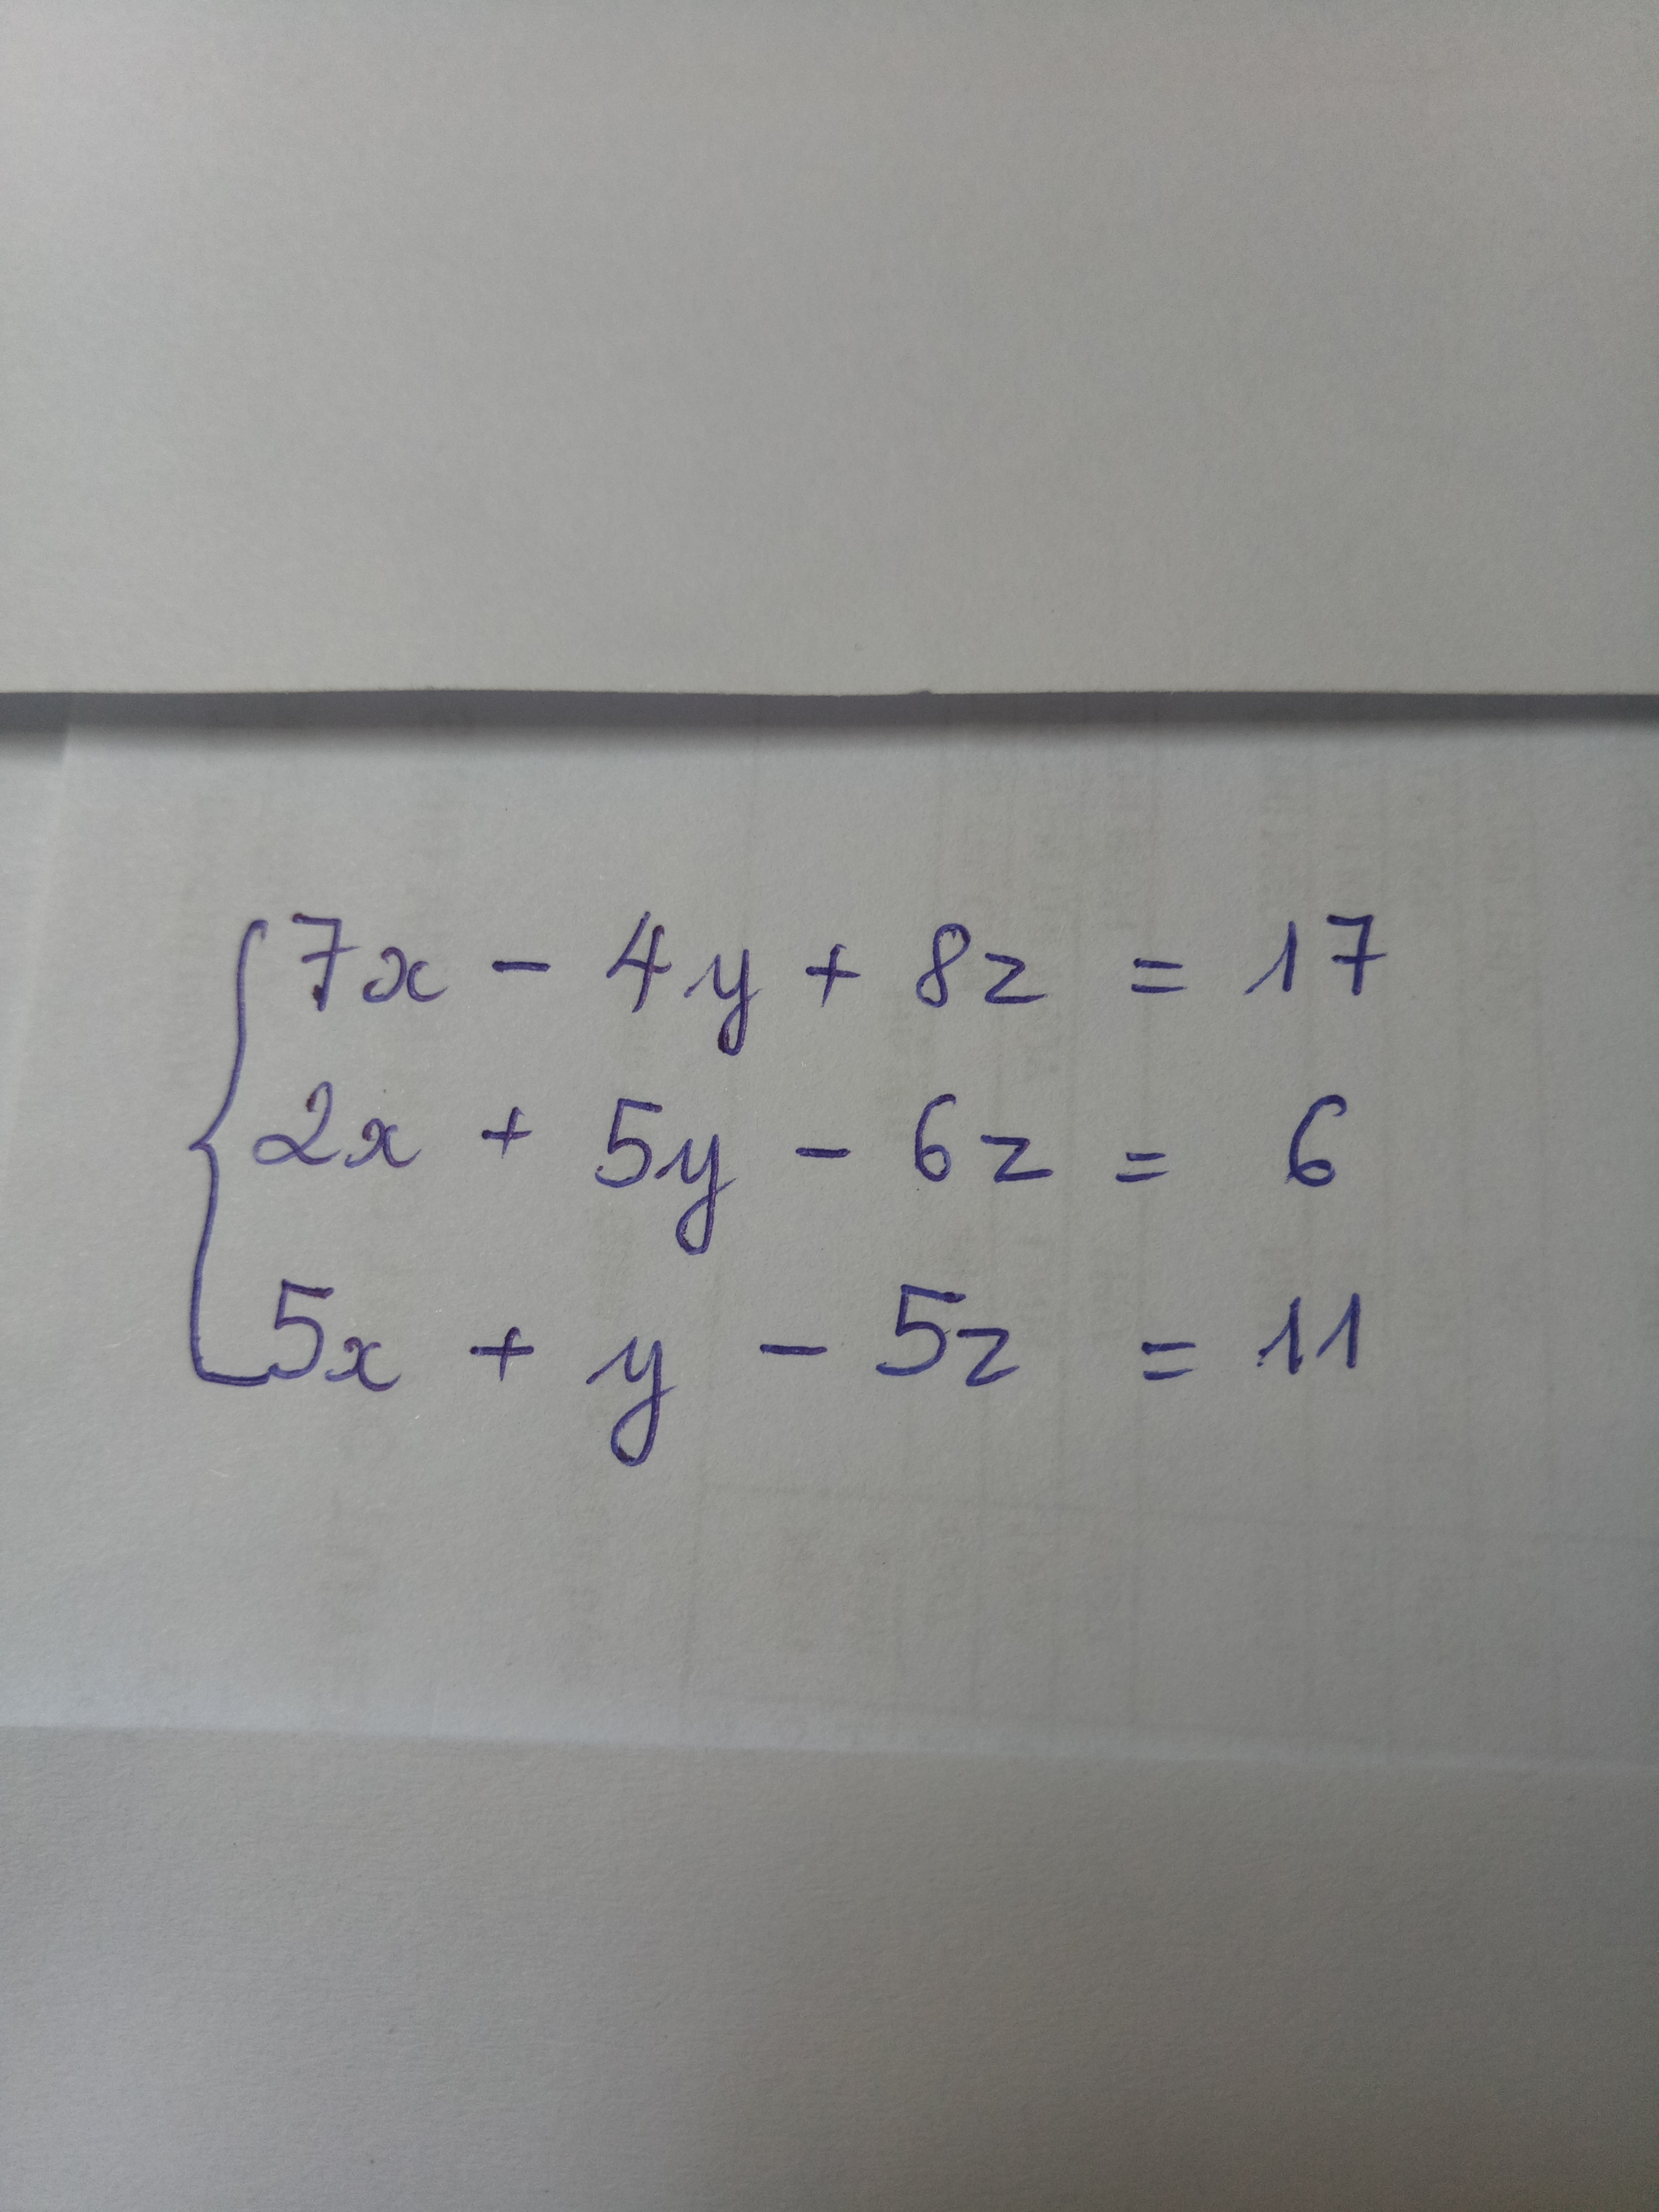 7x - 4y + 8z = 17
2x + 5y - 6z = 6
5x + y - 5z = 11